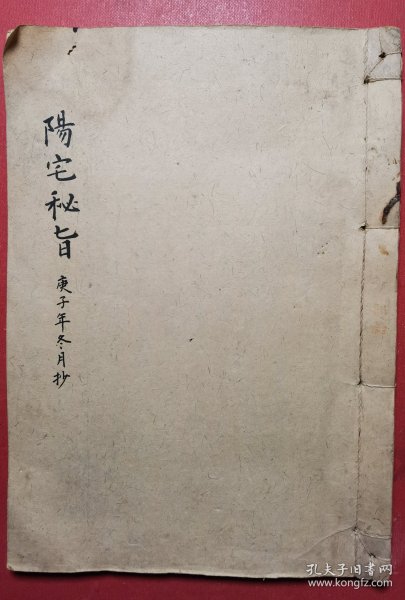 陽宅秘旨
庚子年冬月抄
孔夫子旧书网
www.kongfz.com